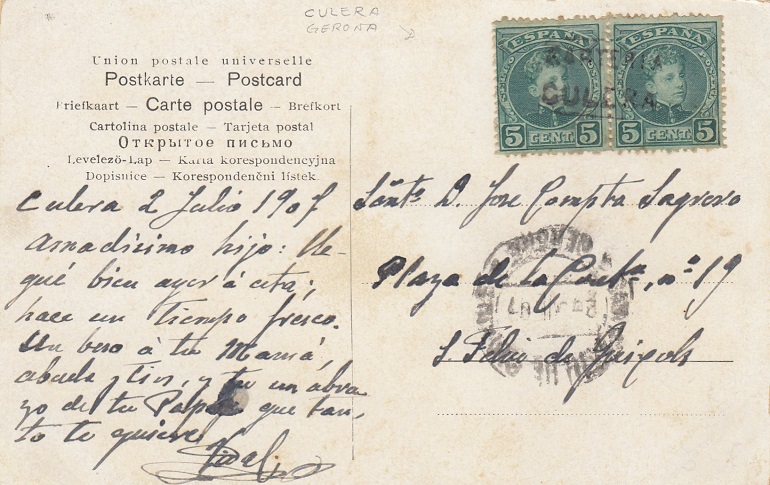 CULERA
GERONA
ESPAÑA ESPAÑA
CARTERIA
CULERA
5 CENT. 5 5 CENT. 5
Union postale universelle
Postkarte — Postcard
Briefkaart — Carte postale — Brefkort
Cartolina postale — Tarjeta postal
Открытое письмо
Levelező-Lap — Karta korespondencyjna
Dopisnice — Korespondenční lístek
Culera 2 Julio 1907
Amadisimo hijo: lle-
gué bien ayer á esta;
hace un tiempo fresco.
Un beso á tu Mamá,
abuela y tios, y tu un abra-
zo de tu Papá que tan-
to te quiere
Vidal
D. Jose Compta Sagrera
Plaza de la nº 19
S. Feliu de Guixols
GERONA